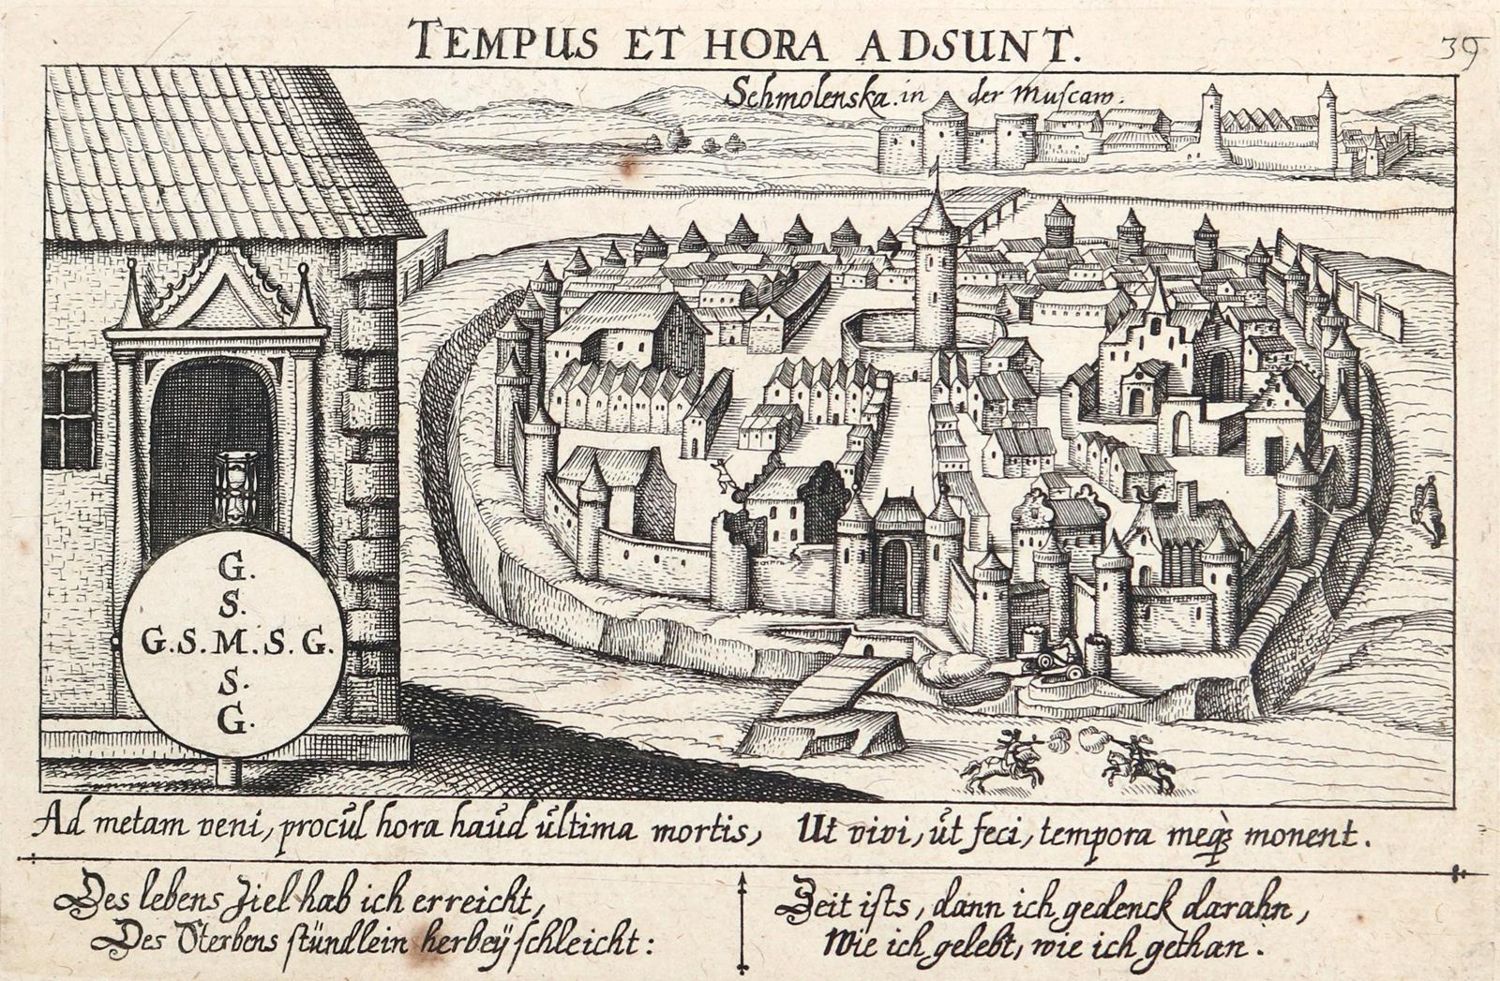 TEMPUS ET HORA ADSUNT.
39
Schmolenska in der Muſcaw.
G.
S.
G.S.M.S.G.
S.
G.
Ad metam veni, procŭl hora haŭd ŭltima mortis,
Ut vivi, ŭt feci, tempora meq₃ monent.
Des lebens Ziel hab ich erreicht,
Des Sterbens ſtündlein herbeÿ ſchleicht:
Zeit iſts, dann ich gedenck darahn,
Wie ich gelebt, wie ich gethan.